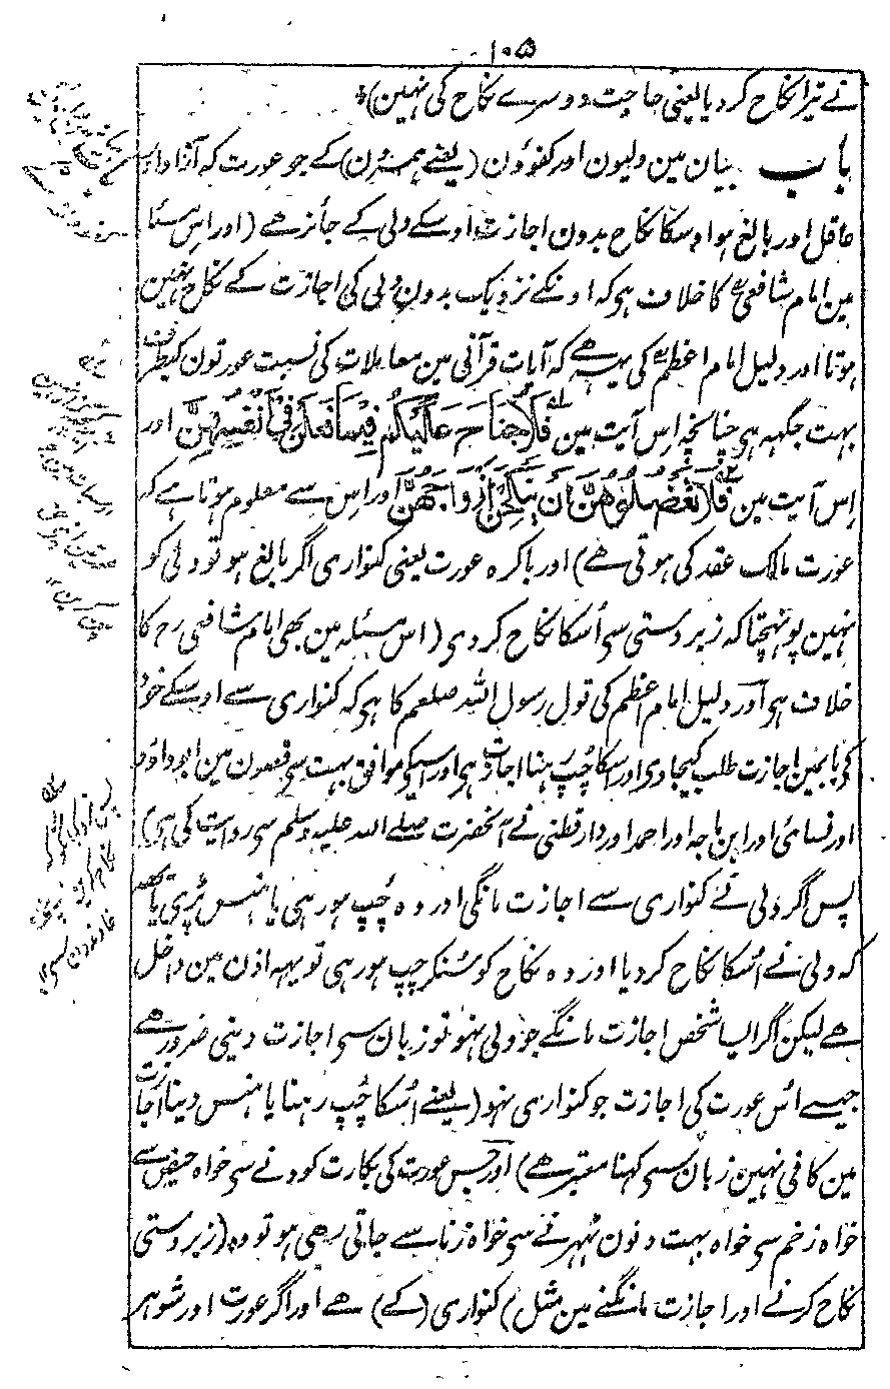 ۱۰۵
نے تیرا نکاح کر دیا یعنی حاجت دوسرے نکاح کی نہین)؛
باب بیان مین ولیون اور کفوؤن (یعنے ہمسرون) کے جو عورت کہ آزاد اور
عاقل اور بالغ ہو اوسکا نکاح بدون اجازت اوسکے ولی کے جائز ھے (اور اس مسئلہ
مین امام شافعیؒ کا خلاف ہی کہ اونکے نزدیک بدون ولی کی اجازت کے نکاح نہین
ہوتا اور دلیل امام اعظمؒ کی یہہ ھے کہ آیات قرآنی مین معاملات کی نسبت عورتون کیطرف
بہت جگہہ ہی چنانچہ اس آیت مین فَلَا جُنَاحَ عَلَيْكُمْ فِيمَا فَعَلْنَ فِي أَنْفُسِهِنَّ اور
اس آیت مین فَلَا تَعْضُلُوهُنَّ أَنْ يَنْكِحْنَ أَزْوَاجَهُنَّ اور اس سے معلوم ہوتا ہے کہ
عورت مالک عقد کی ہوتی ھے) اور باکرہ عورت یعنی کنواری اگر بالغ ہو تو ولی کو
نہین پونہچتا کہ زبردستی سی اُسکا نکاح کر دی (اس مسئلہ مین بھی امام شافعی رح کا
خلاف ہی اور دلیل امام اعظم کی قول رسول اللہ صلعم کا ہی کہ کنواری سے اوسکے خود
کی بابمین اجازت طلب کیجاوی اور اسکا چُپ رہنا اجازت ہی اور اسیکی موافق بہت سی قصون مین ابوداؤد
اور نسائی اور ابن ماجہ اور احمد اور دارقطنی نے آنحضرت صلے اللہ علیہ وسلم سی روایت کی ہی)
پس اگر ولی نے کنواری سے اجازت مانگی اور وہ چُپ ہو رہی یا ہنس پڑی یا یہہ
کہ ولی نے اُسکا نکاح کر دیا اور وہ نکاح کو سُنکر چپ ہو رہی تو یہہ اذن مین داخل
ھے لیکن اگر ایسا شخص اجازت مانگے جو ولی نہو تو زبان سی اجازت دینی ضرور ھے
جیسے اُس عورت کی اجازت جو کنواری نہو (یعنے اُسکا چُپ رہنا یا ہنس دینا اجازت
مین کافی نہین زبان سی کہنا معتبر ھے) اور جس عورت کی بکارت کودنے سی خواہ حیض سے
خواہ زخم سی خواہ بہت دنون ٹہرنے سی خواہ زنا سے جاتی رھی ہو تو وہ (زبردستی
نکاح کرنے اور اجازت مانگنے مین مثل) کنواری (کے) ھے اور اگر عورت اور شوہر